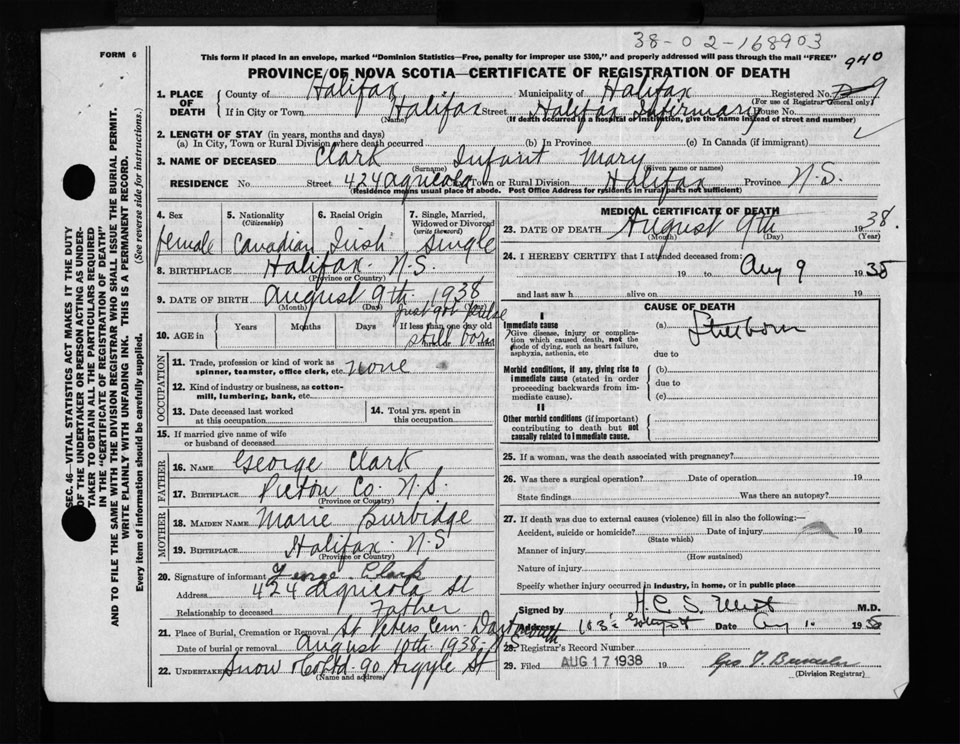 38-02-168903
FORM 6
This form if placed in an envelope, marked "Dominion Statistics—Free, penalty for improper use $300," and properly addressed will pass through the mail "FREE" 940
PROVINCE OF NOVA SCOTIA—CERTIFICATE OF REGISTRATION OF DEATH
1. PLACE OF DEATH County of Halifax Municipality of Halifax Registered No. 9
(For use of Registrar General only)
If in City or Town Halifax Street Halifax Infirmary House No.
(Name) (If death occurred in a hospital or institution, give the name instead of street and number)
2. LENGTH OF STAY (in years, months and days)
(a) In City, Town or Rural Division where death occurred (b) In Province (c) In Canada (if immigrant)
3. NAME OF DECEASED Clark Infant Mary
(Surname) (Given name or names)
RESIDENCE No. Street 424 Agricola City, Town or Rural Division Halifax Province N.S.
(Residence means usual place of abode. Post Office Address for residents in rural parts not sufficient)
4. Sex 5. Nationality (Citizenship) 6. Racial Origin 7. Single, Married, Widowed or Divorced (write the word)
female Canadian Irish Single
8. BIRTHPLACE Halifax N.S.
(Province or Country)
9. DATE OF BIRTH August 9th 1938
(Month) (Day) (Year)
10. AGE in Years Months Days If less than one day old
Still born
OCCUPATION
11. Trade, profession or kind of work as spinner, teamster, office clerk, etc. none
12. Kind of industry or business, as cotton-mill, lumbering, bank, etc.
13. Date deceased last worked at this occupation
14. Total yrs. spent in this occupation
15. If married give name of wife or husband of deceased
FATHER
16. NAME George Clark
17. BIRTHPLACE Pictou Co. N.S.
(Province or Country)
MOTHER
18. MAIDEN NAME Marie Burbidge
19. BIRTHPLACE Halifax N.S
(Province or Country)
20. Signature of informant George Clark
Address 424 Agricola St
Relationship to deceased Father
21. Place of Burial, Cremation or Removal St Peters Cem. Dartmouth
Date of burial or removal August 10th 1938 N.S.
22. UNDERTAKER Snow & Co Ltd. 90 Argyle St
(Name and address)
MEDICAL CERTIFICATE OF DEATH
23. DATE OF DEATH August 9th 1938.
(Month) (Day) (Year)
24. I HEREBY CERTIFY that I attended deceased from:
19 to Aug 9 1938
and last saw h alive on 19
CAUSE OF DEATH
I
Immediate cause (a) Stillborn
Give disease, injury or complication which caused death, not the mode of dying, such as heart failure, asphyxia, asthenia, etc
due to
Morbid conditions, if any, giving rise to immediate cause (stated in order proceeding backwards from immediate cause).
(b)
due to
(c)
II
Other morbid conditions (if important) contributing to death but not causally related to immediate cause.
25. If a woman, was the death associated with pregnancy?
26. Was there a surgical operation? Date of operation 19
State findings Was there an autopsy?
27. If death was due to external causes (violence) fill in also the following:—
Accident, suicide or homicide? Date of injury 19
(State which)
Manner of injury
(How sustained)
Nature of injury
Specify whether injury occurred in industry, in home, or in public place
Signed by H. C. S. M.D.
Address 103 Date Aug 10 1938
28. Registrar's Record Number
29. Filed AUG 17 1938 19
(Division Registrar)
SEC. 46—VITAL STATISTICS ACT MAKES IT THE DUTY
OF THE UNDERTAKER OR PERSON ACTING AS UNDER-
TAKER TO OBTAIN ALL THE PARTICULARS REQUIRED
IN THE "CERTIFICATE OF REGISTRATION OF DEATH"
AND TO FILE THE SAME WITH THE DIVISION REGISTRAR WHO SHALL ISSUE THE BURIAL PERMIT.
WRITE PLAINLY WITH UNFADING INK. THIS IS A PERMANENT RECORD.
Every item of information should be carefully supplied. (See reverse side for instructions.)